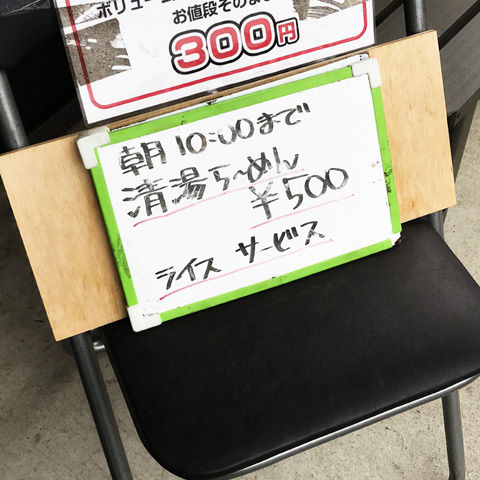 ボリューム
お値段そのまま
300円
朝10:00まで
清湯らーめん
¥500
ライス サービス